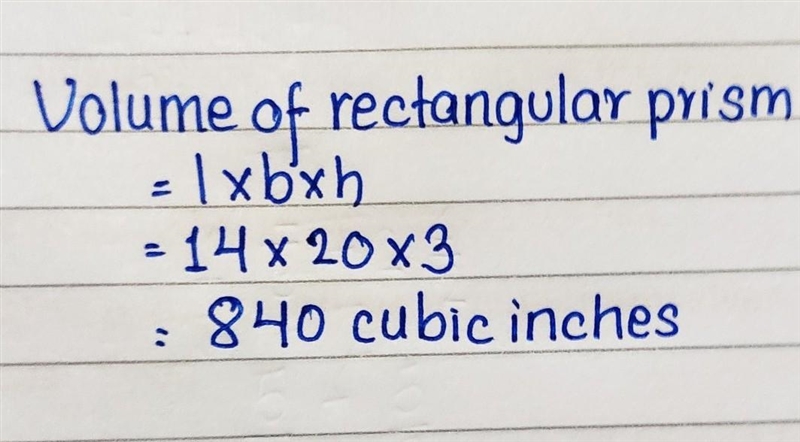 Volume of rectangular prism
= l x b x h
= 14 x 20 x 3
= 840 cubic inches